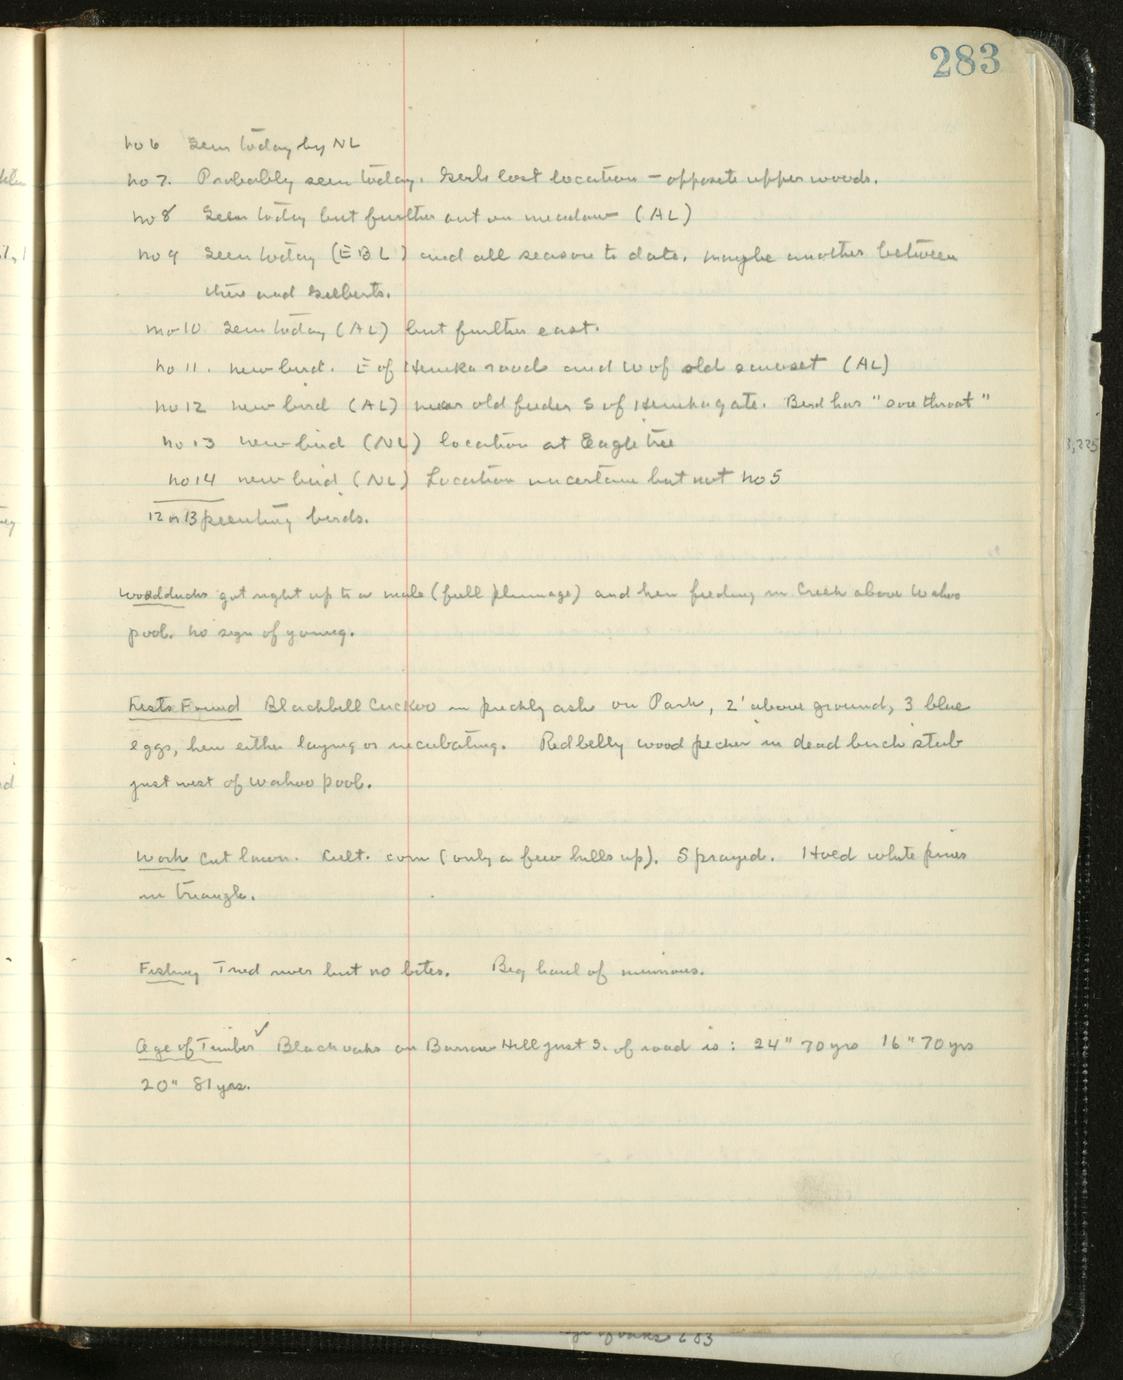 283
No 6 Seen today by NL
No 7. Probably seen today. Girls lost location – opposite upper woods.
No 8 Seen today but further out on meadow (AL)
No 9 Seen today (EBL) and all season to date. Maybe another between
this and Gilberts.
No 10 Seen today (AL) but further east.
No 11. New bird. E of Hemka woods and W of old (AL)
No 12 new bird (AL) near old feeder S of Hemka gate. Bird has "sore throat"
No 13 new bird (NL) location at Eagle tree
No 14 new bird (NL) Location uncertain but not No 5
12 or 13 peenting birds.
Woodducks got right up to a male (full plumage) and hen feeding in Creek above Wahoo
pool. No sign of young.
Nests Found Blackbill Cuckoo in prickly ash on Park, 2' above ground, 3 blue
eggs, hen either laying or incubating. Redbelly woodpecker in dead birch stub
just west of Wahoo pool.
Work Cut lawn. Cult. corn (only a few hills up). Sprayed. Hoed white pines
in triangle.
Fishing Tried river but no bites. Big haul of minnows.
Age of Timber ✓ Black oaks on Barrows Hill just S. of road is: 24" 70 yrs 16" 70 yrs
20" 81 yrs.
3,225